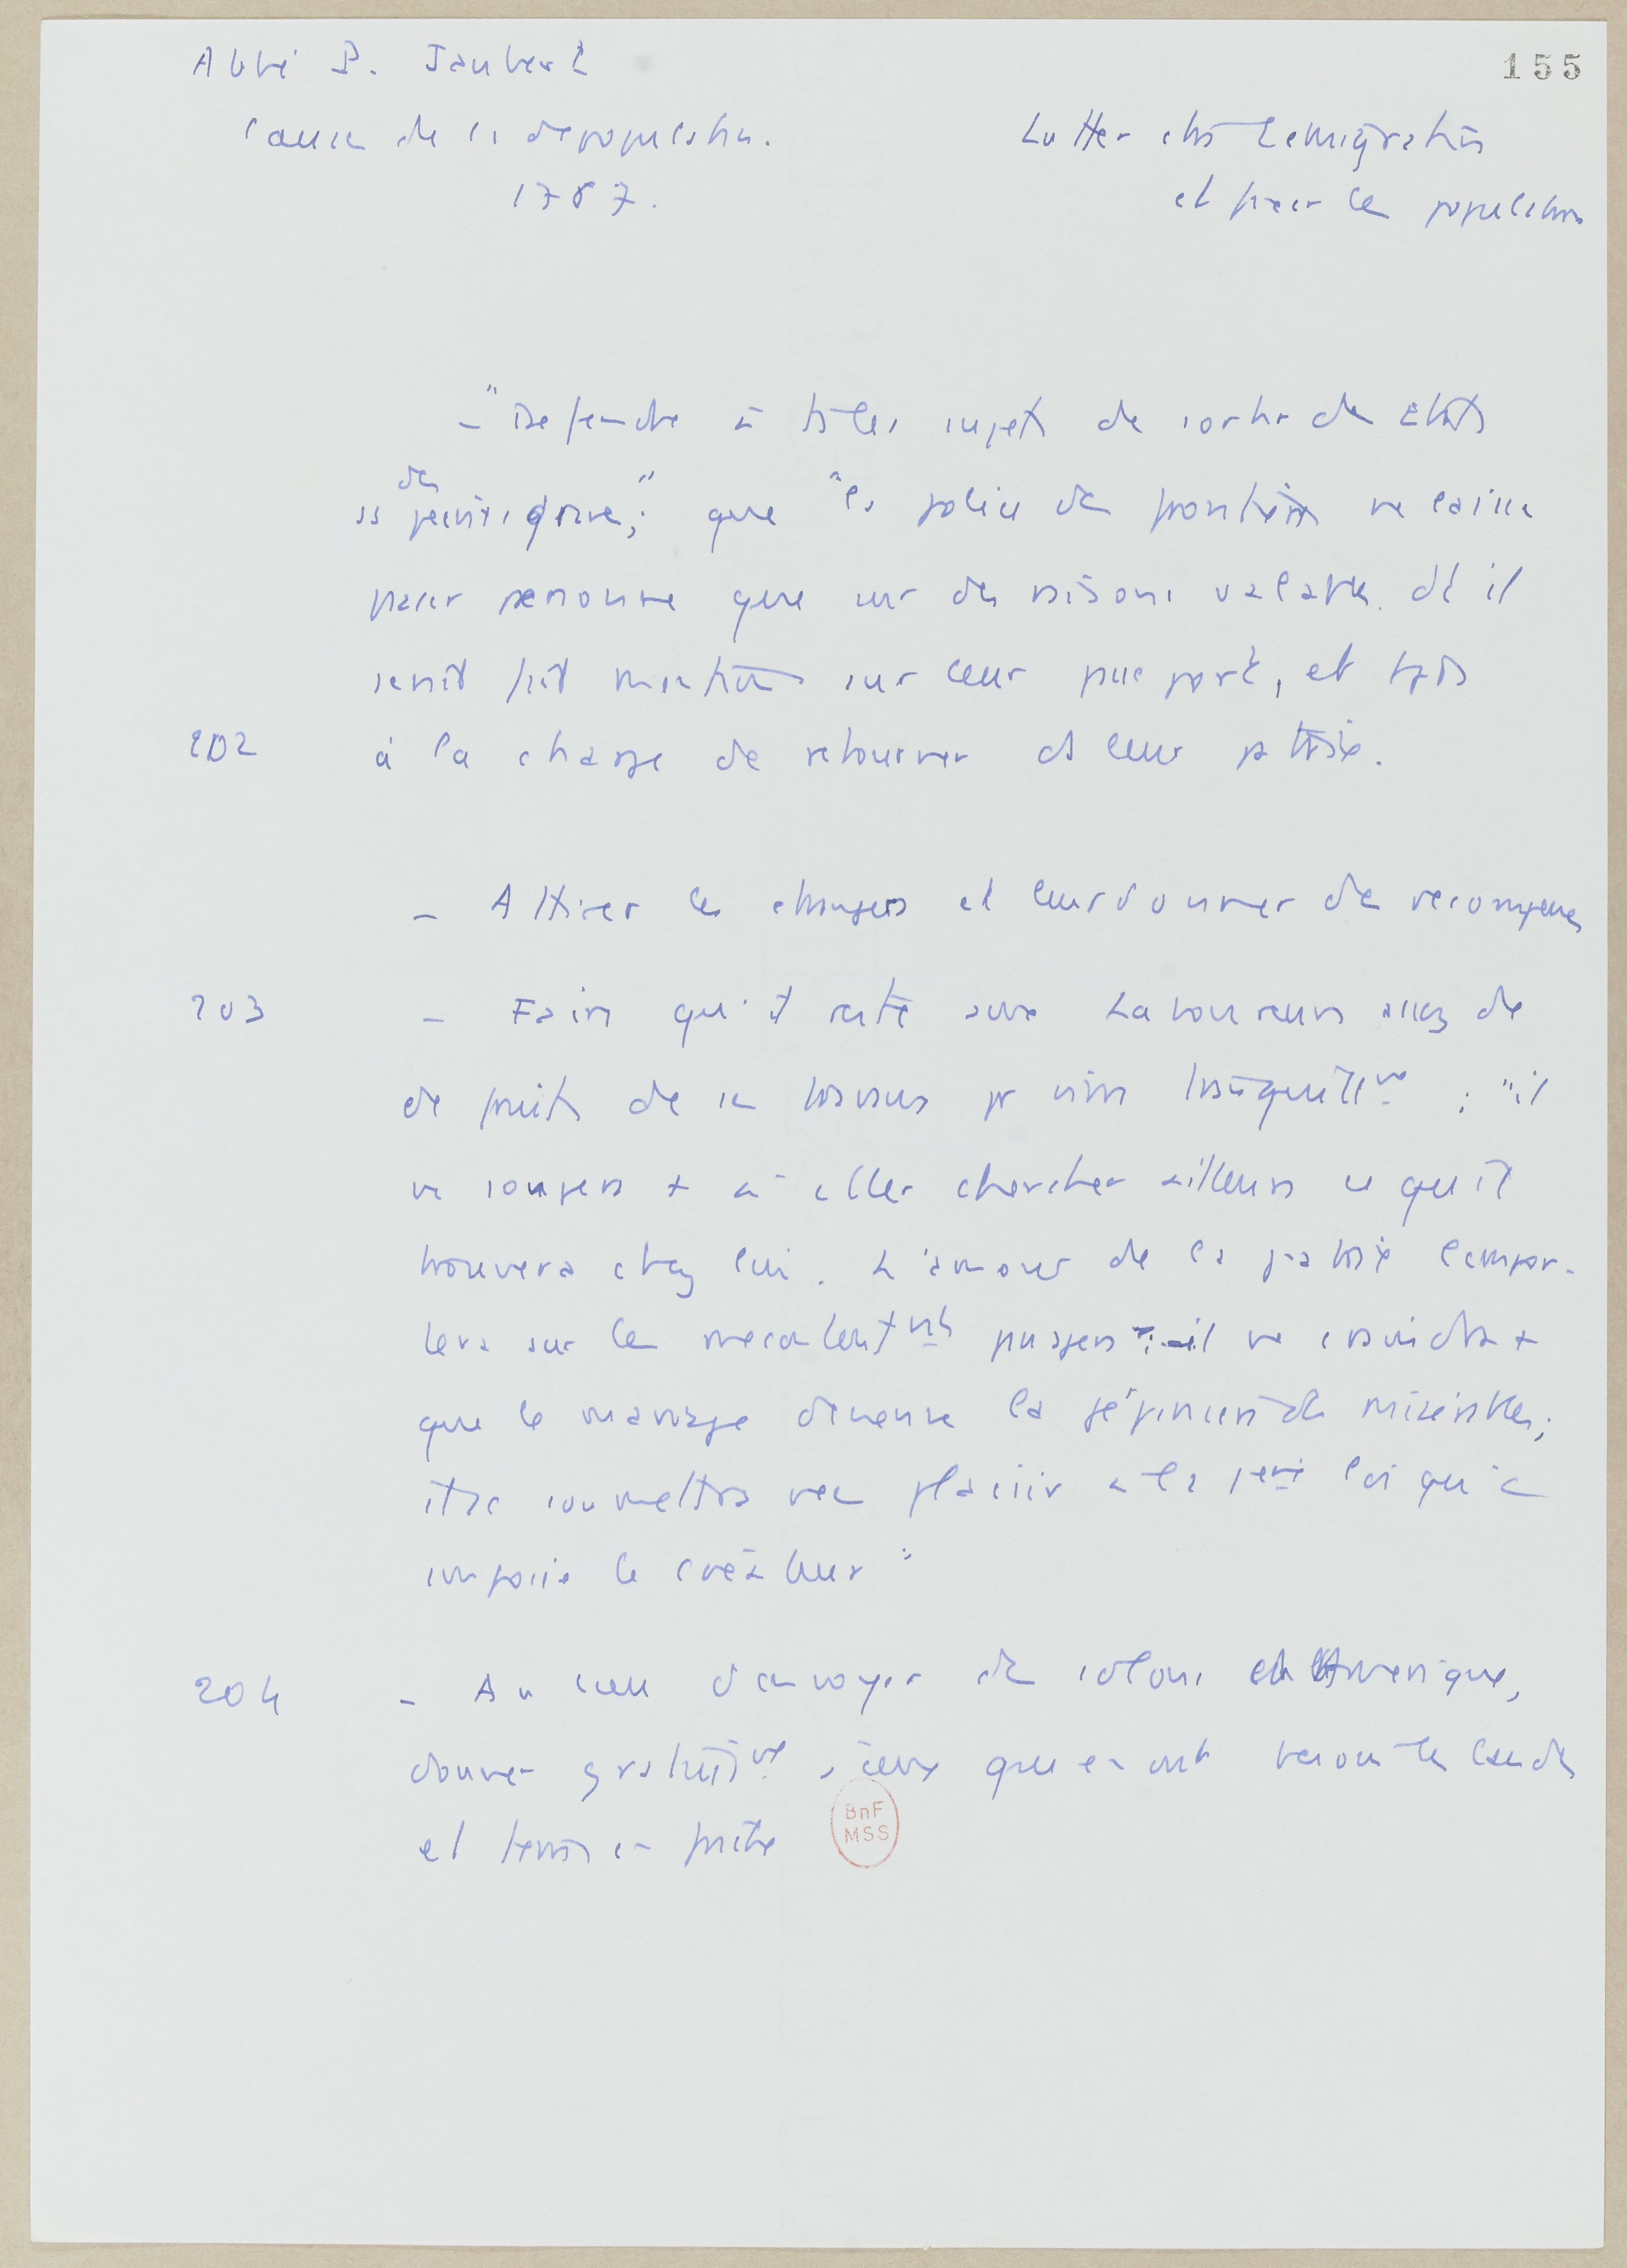 Abbé P. Jaubert
155
Causes de la depopulation.
1767.
Lutter ctre l'emigration
et fixer les populations
- "Defendre à ts les sujets de sortir des Etats
des
ss peines graves;" que "la police des frontières ne laisse
passer personne que sur des raisons valables dt il
serait fait mention sur leur passeport, et tjrs
202 à la charge de retourner ds leur patrie.
- Attirer les etrangers et leur donner des recompenses
203 - Faire qu'il reste aux Laboureurs assez de
de fruits de ses travaux pr vivre tranquillmt : "il
ne songera + à aller chercher ailleurs ce qu'il
trouvera chez lui. L'amour de la patrie l'empor-
tera sur les mecontentmts passagers ; il ne craindra +
que le mariage devienne la pépinière de misérables;
il se soumettra avec plaisir à la 1ere loi qu'a
imposée le créateur"
204 - Au lieu d'envoyer des colons en Amerique,
donner gratuitmt à ceux qui en ont besoin les landes
et terres en friche
BnF
MSS